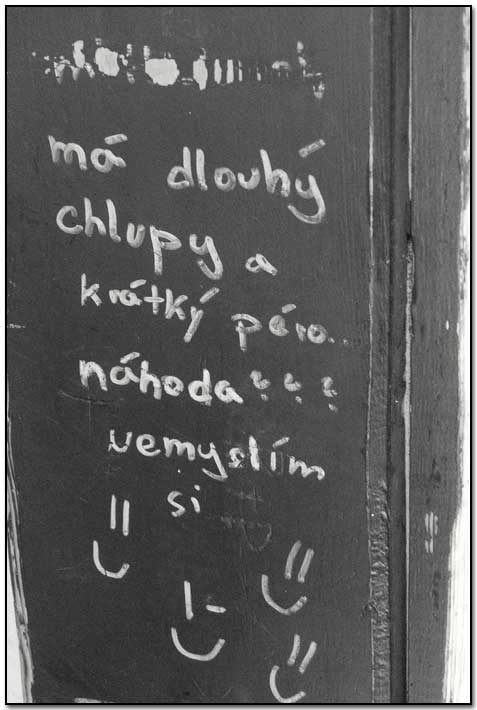 má dlouhý
chlupy a
krátký péro..
náhoda???
nemyslím
si